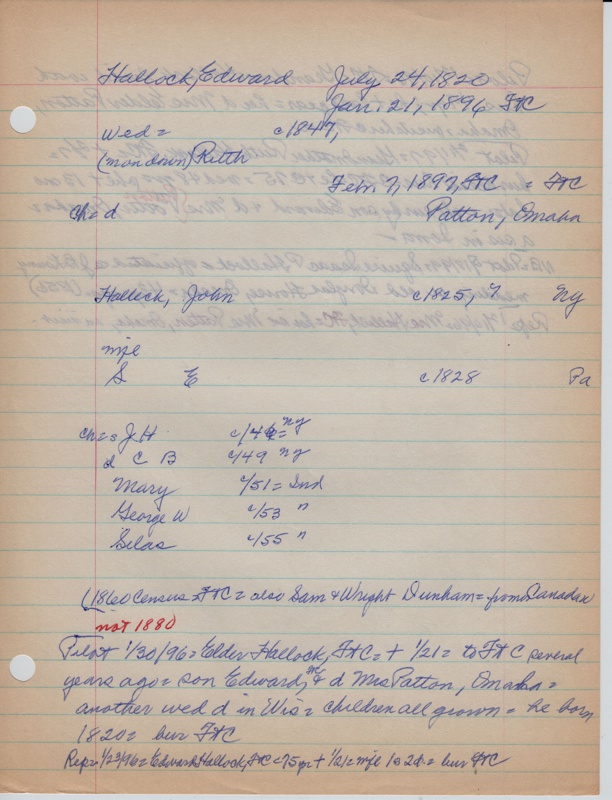 Hallock, Edward July 24, 1820
Jan. 21, 1896 FtC
Wed = c1847,
(mondamin) Ruth
Feb. 7, 1897, FtC = FtC
Ch = d Patton, Omaha
Hallock, John c1825, ? Ny
mfe
S E c1828 Pa
Ch = s J. H. c/46 = ny
d C B c/49 ny
Mary c/51 = Ind
George W c/53 "
Silas c/55 "
(1860 Census = FtC = also Sam & Wright Dunham = from Canada
not 1880
Pilot 1/30/96 = Elder Hallock, FtC = + 1/21 = to FtC several
years ago = son Edward, & d Mrs Patton, Omaha =
another wed d in Wis = children all grown = he born
1820 = bur FtC
Rep = 1/23/96 = Edward Hallock, FtC = 75 yr + 1/21 = mfe 1s 2d = bur FtC